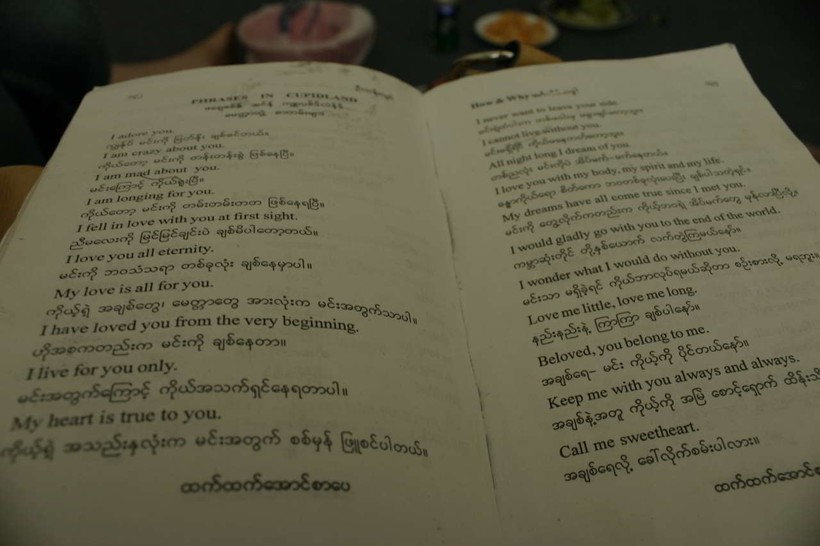 PHRASES IN CUPIDLAND
မေတ္တာလွှဲ စာတမ်းများ
I adore you.
ချစ်မိတယ်။
I am crazy about you.
ကိုယ်တော့ မင်းကို တန်းတန်းစွဲ ဖြစ်နေပြီ။
I am mad about you.
မင်းကြောင့် ကိုယ်ရူးပြီ။
I am longing for you.
ကိုယ်တော့ မင်းကို တမ်းတမ်းတတ ဖြစ်နေရပြီ။
I fell in love with you at first sight.
ညီမလေးကို မြင်မြင်ချင်းပဲ ချစ်မိပါတော့တယ်။
I love you all eternity.
မင်းကို ဘဝသံသရာ တစ်ခုလုံး ချစ်နေမှာပါ။
My love is all for you.
ကိုယ့်ရဲ့ အချစ်တွေ၊ မေတ္တာတွေ အားလုံးက မင်းအတွက်သာပါ။
I have loved you from the very beginning.
ဟိုအစကတည်းက မင်းကို ချစ်နေတာ။
I live for you only.
မင်းအတွက်ကြောင့် ကိုယ်အသက်ရှင်နေရတာပါ။
My heart is true to you.
ကိုယ့်ရဲ့ အသည်းနှလုံးက မင်းအတွက် စစ်မှန် ဖြူစင်ပါတယ်။
ထက်ထက်အောင်စာပေ
How & Why
I never want to leave your side.
I cannot live without you.
All night long I dream of you.
I love you with my body, my spirit and my life.
My dreams have all come true since I met you.
မင်းကို တွေ့လိုက်ကတည်းက ကိုယ့်ဘဝရဲ့ အိပ်မက်တွေ
I would gladly go with you to the end of the world.
ကမ္ဘာဆုံးတိုင် တို့နှစ်ယောက် လက်တွဲကြမယ်နော်။
I wonder what I would do without you.
မင်းသာ မရှိခဲ့ရင် ကိုယ်ဘာလုပ်ရမယ်ဆိုတာ စဉ်းစားလို့ မရဘူး။
Love me little, love me long.
နည်းနည်းနဲ့ ကြာကြာ ချစ်ပါနော်။
Beloved, you belong to me.
အချစ်ရေ– မင်း ကိုယ့်ကို ပိုင်တယ်နော်။
Keep me with you always and always.
အချစ်နဲ့အတူ ကိုယ့်ကို အမြဲ စောင့်ရှောက်
Call me sweetheart.
အချစ်ရေလို့ ခေါ်လိုက်စမ်းပါလား။
ထက်ထက်အောင်